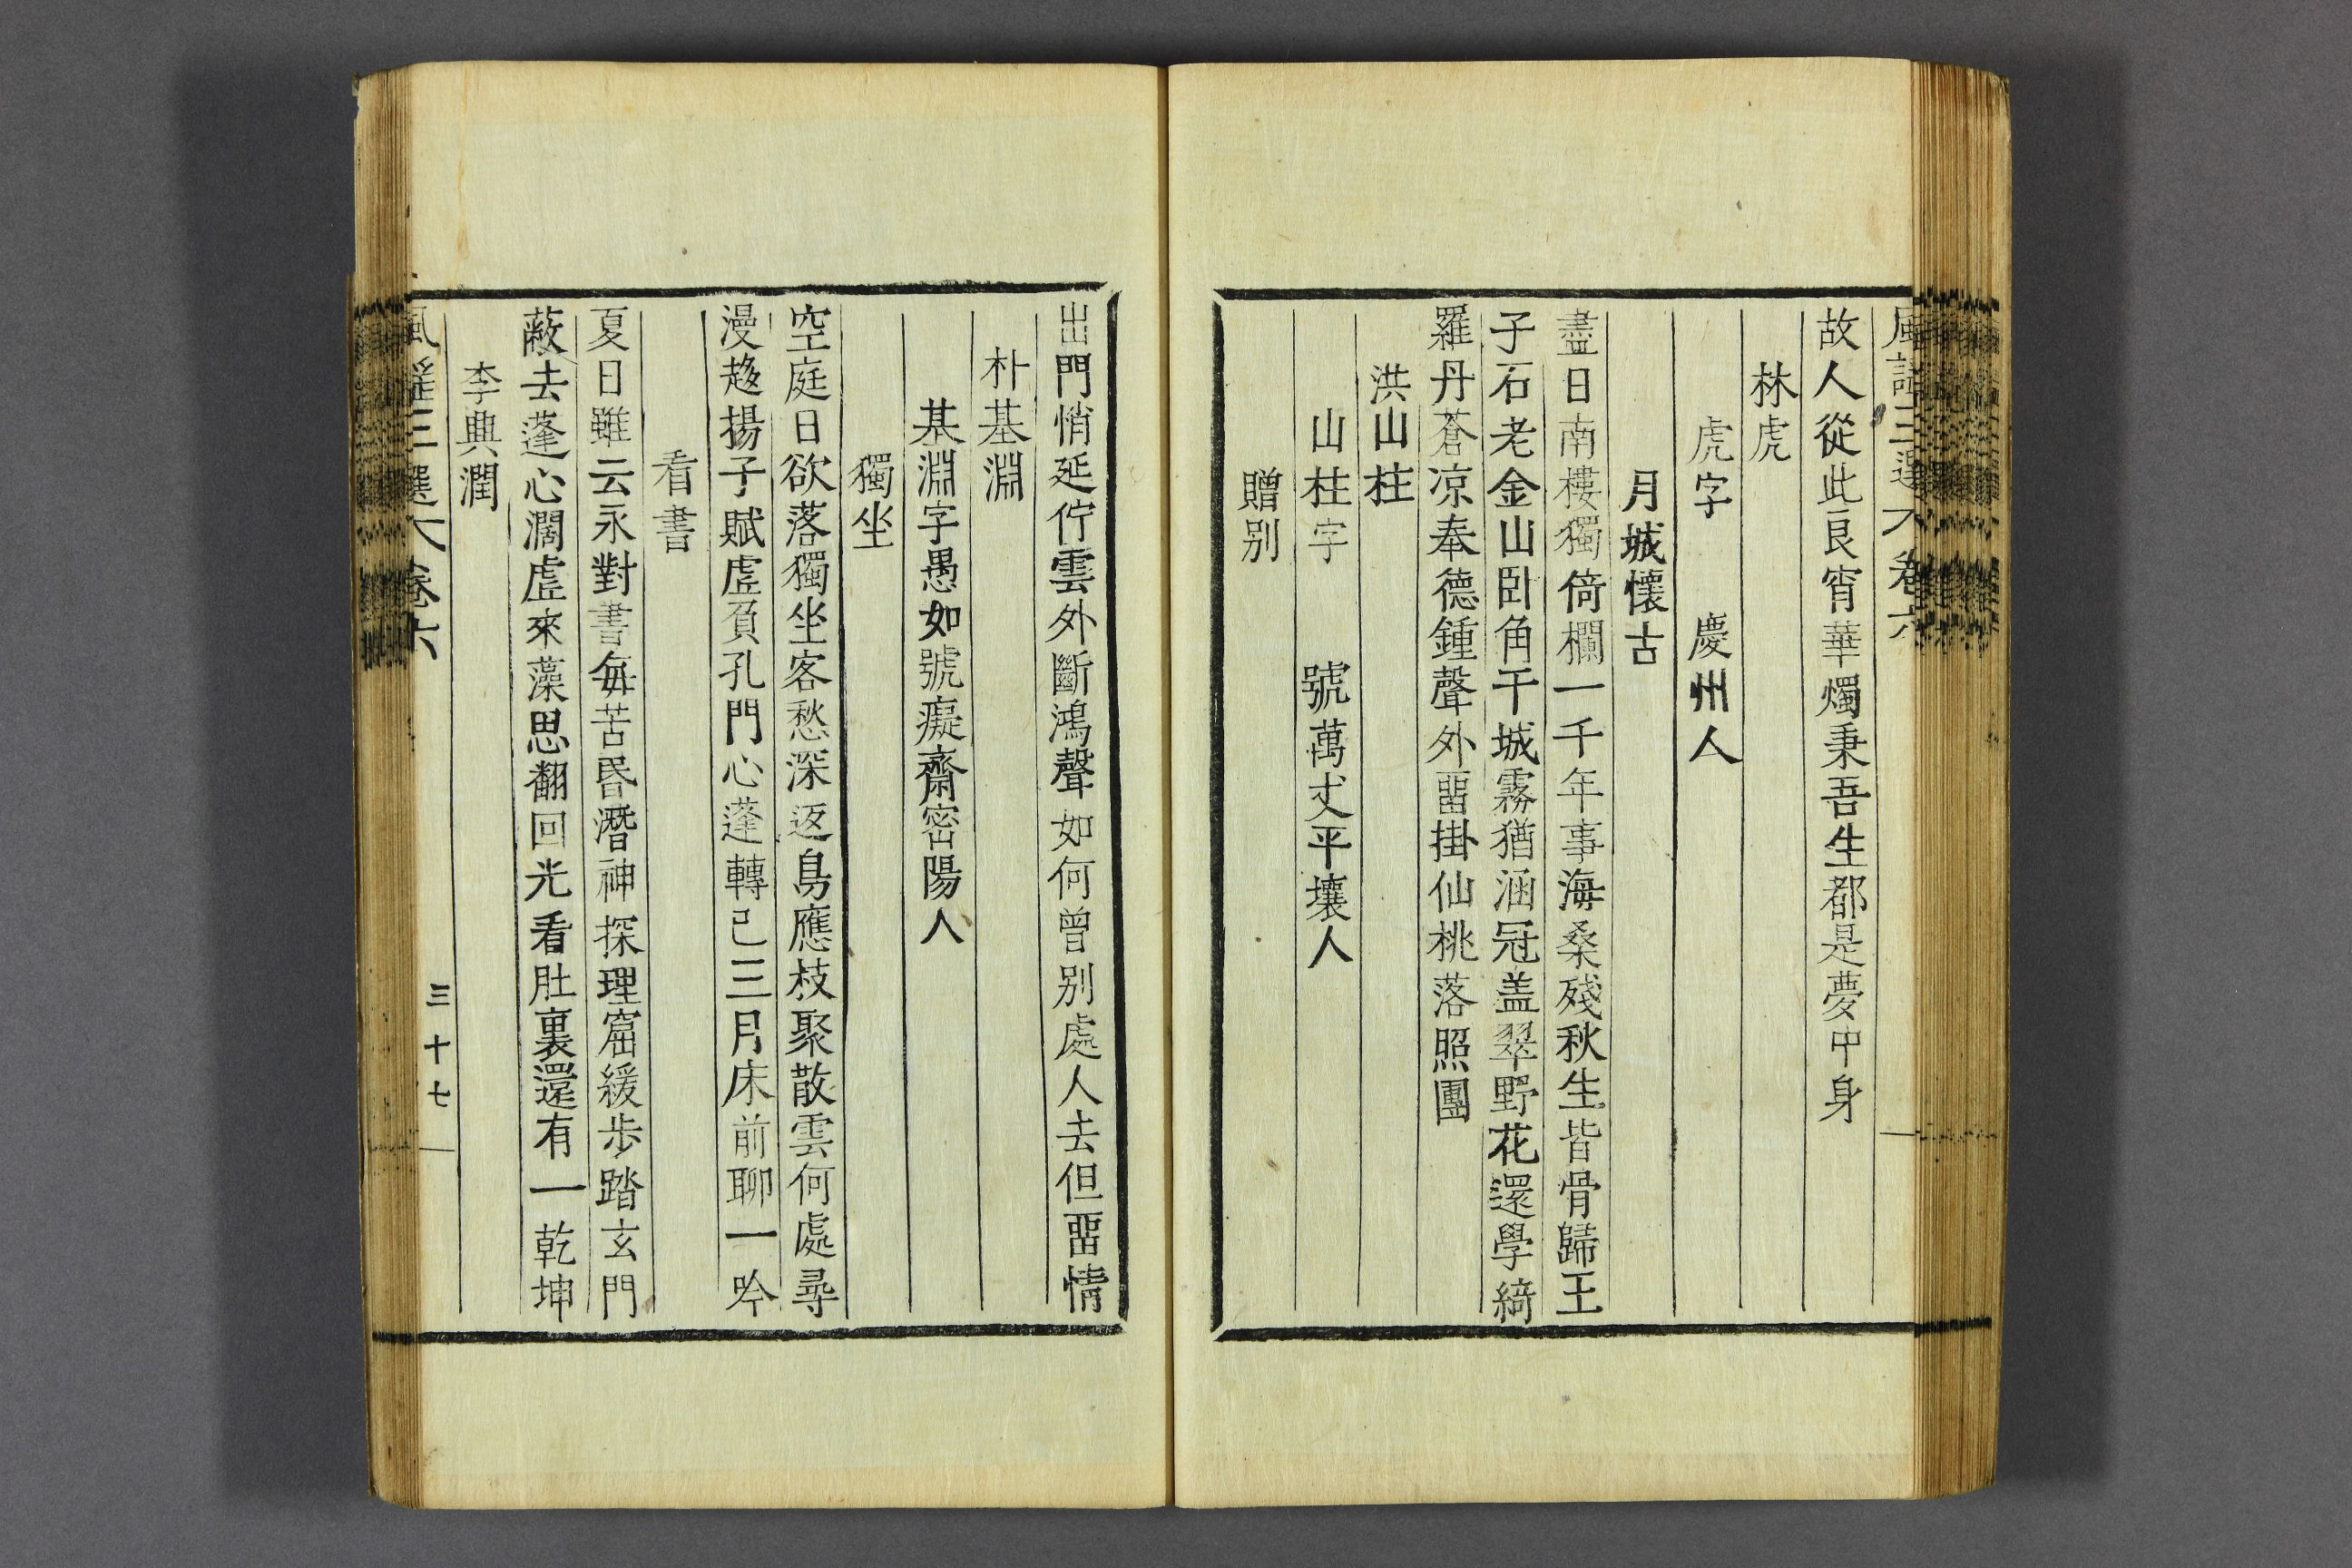 風謠三選 卷六
故人從此良宵華燭秉吾生都是夢中身
林虎
虎字 慶州人
月城懷古
盡日南樓獨倚欄一千年事海桑殘秋生皆骨歸王
子石老金山卧角干城霧猶涵冠盖翠野花還學綺
羅丹蒼凉奉德鍾聲外畱掛仙桃落照團
洪山柱
山柱字 號萬丈平壤人
贈别
出門悄延佇雲外斷鴻聲如何曾别處人去但畱情
朴基淵
基淵字愚如號癡齋密陽人
獨坐
空庭日欲落獨坐客愁深返鳥應枝聚散雲何處尋
漫趍揚子賦虛負孔門心蓬轉已三月床前聊一吟
看書
夏日雖云永對書每苦昏潛神探理窟緩步踏玄門
蔽去蓬心濶虛來藻思翻回光看肚裏還有一乾坤
李典潤
風謠三選 卷六
三十七